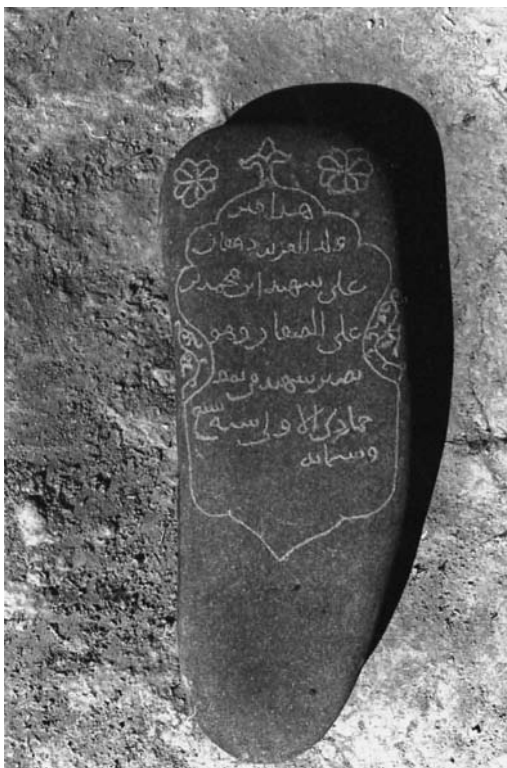 هذا قبر
ولد العزيز دهقان
على شهيد ابن محمد بن
على الصفار وهو
شهيد فى
جمادى الاولى سنة ست
وستمائة